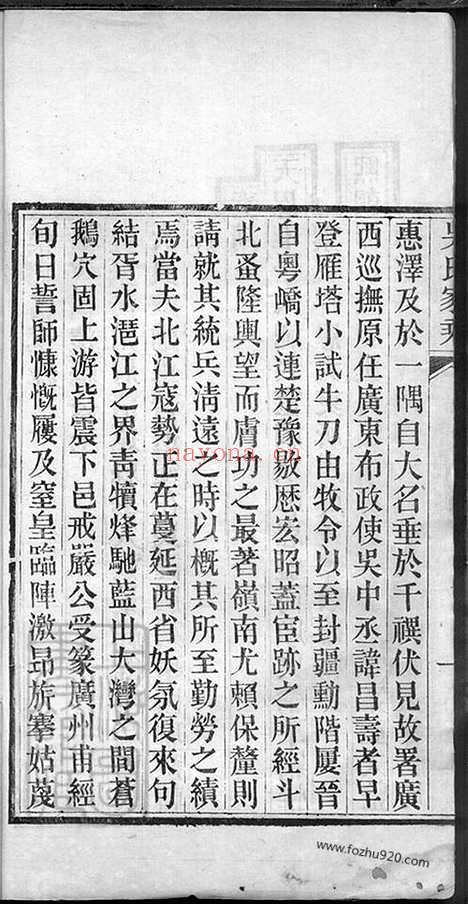 吳氏家乘
惠澤及於一隅自大名垂於千禩伏見故署廣
西巡撫原任廣東布政使吳中丞諱昌壽者早
登雁塔小試牛刀由牧令以至封疆勳階屢晉
自粵嶠以連楚豫敭歷宏昭蓋宦跡之所經斗
北蚤隆輿望而膚功之最著嶺南尤賴保釐則
請就其統兵淸遠之時以槪其所至勤勞之績
焉當夫北江寇勢正在蔓延西省妖氛復來句
結胥水滬江之界靑犢烽馳藍山大灣之間蒼
鵝穴固上游皆震下邑戒嚴公受篆廣州甫經
旬日誓師慷慨屨及窒皇臨陣激昂旂搴姑蔑
一
nayona.cn
www.fozhu920.com